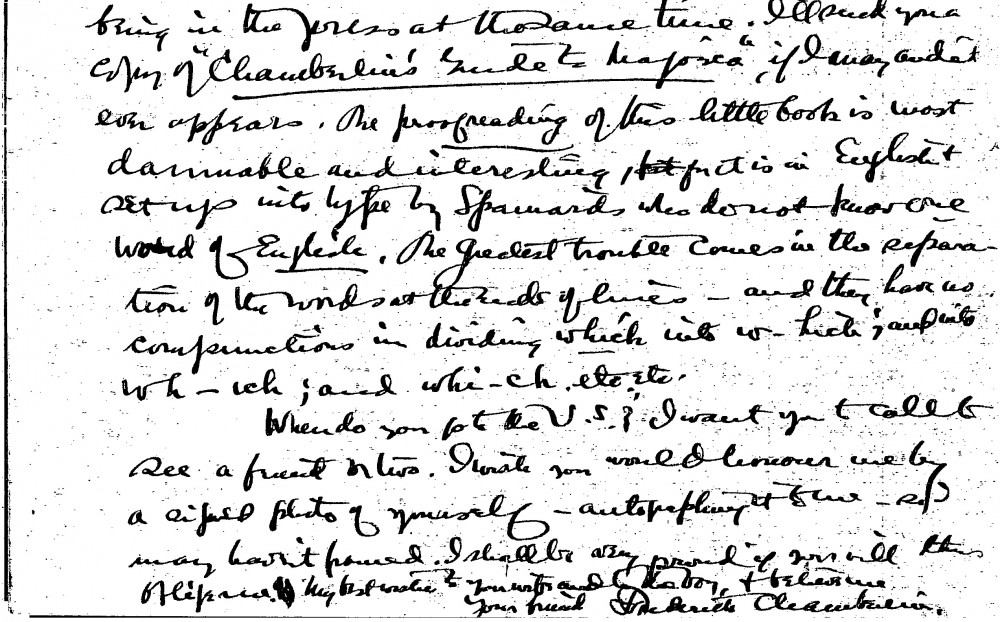 being in the press at the same time. I'll send you a
copy of "Chamberlin's Guide to Majorca", if I may and it
ever appears. The proofreading of this little book is most
damnable and interesting, for it is in English &
set up into type by Spaniards who do not know one
word of English. The greatest trouble comes in the separa-
tion of the words at the ends of lines - and they have no
compunctions in dividing which into w-hich; and into
wh-ich; and whi-ch, etc. etc.
When do you go to the U.S.? I want you to call &
see a friend or two. I wish you would honour me by
a signed photo of yourself - autographing it to me - so I
may have it framed. I shall be very proud if you will thus
oblige me. My best wishes to your wife and to the boy, & believe me
Your friend Frederick Chamberlin.